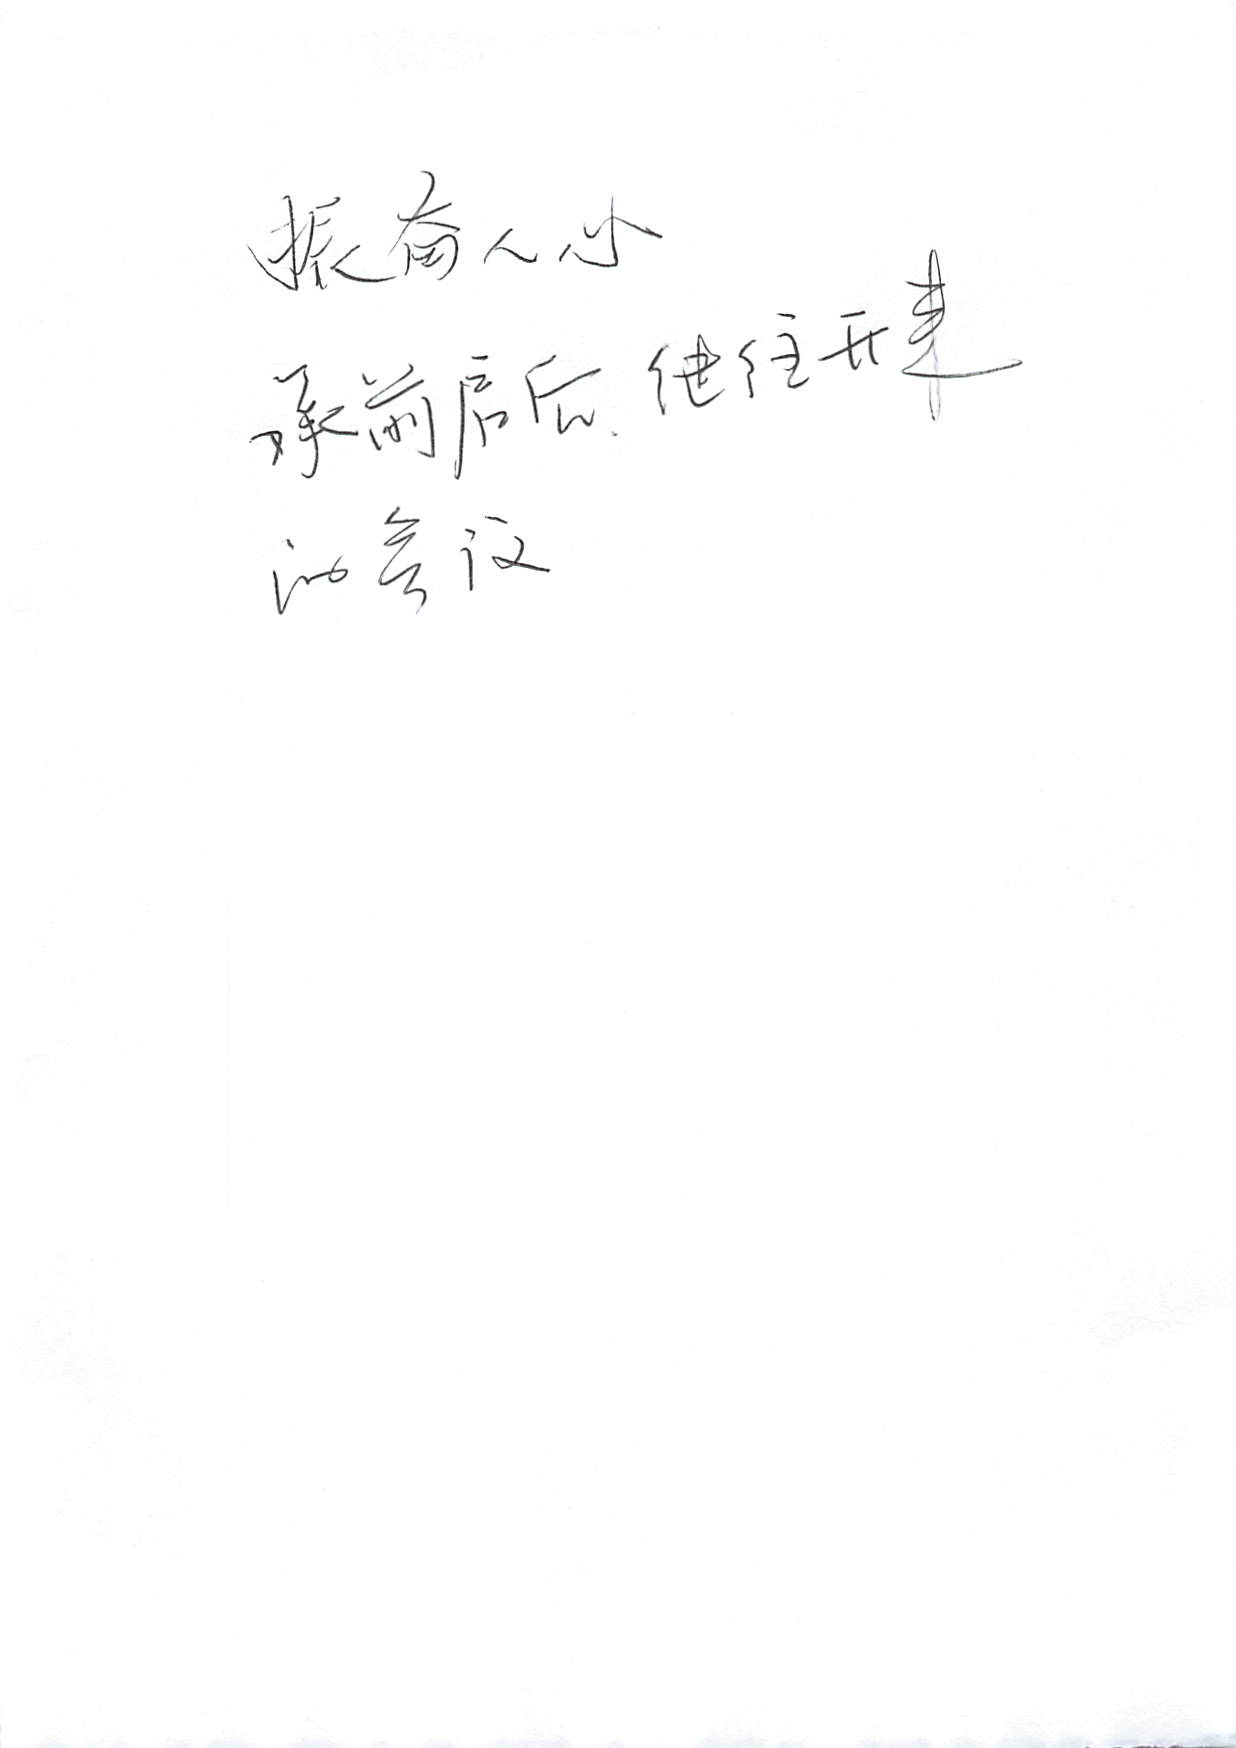 振奋人心
承前启后、继往开来
的会议